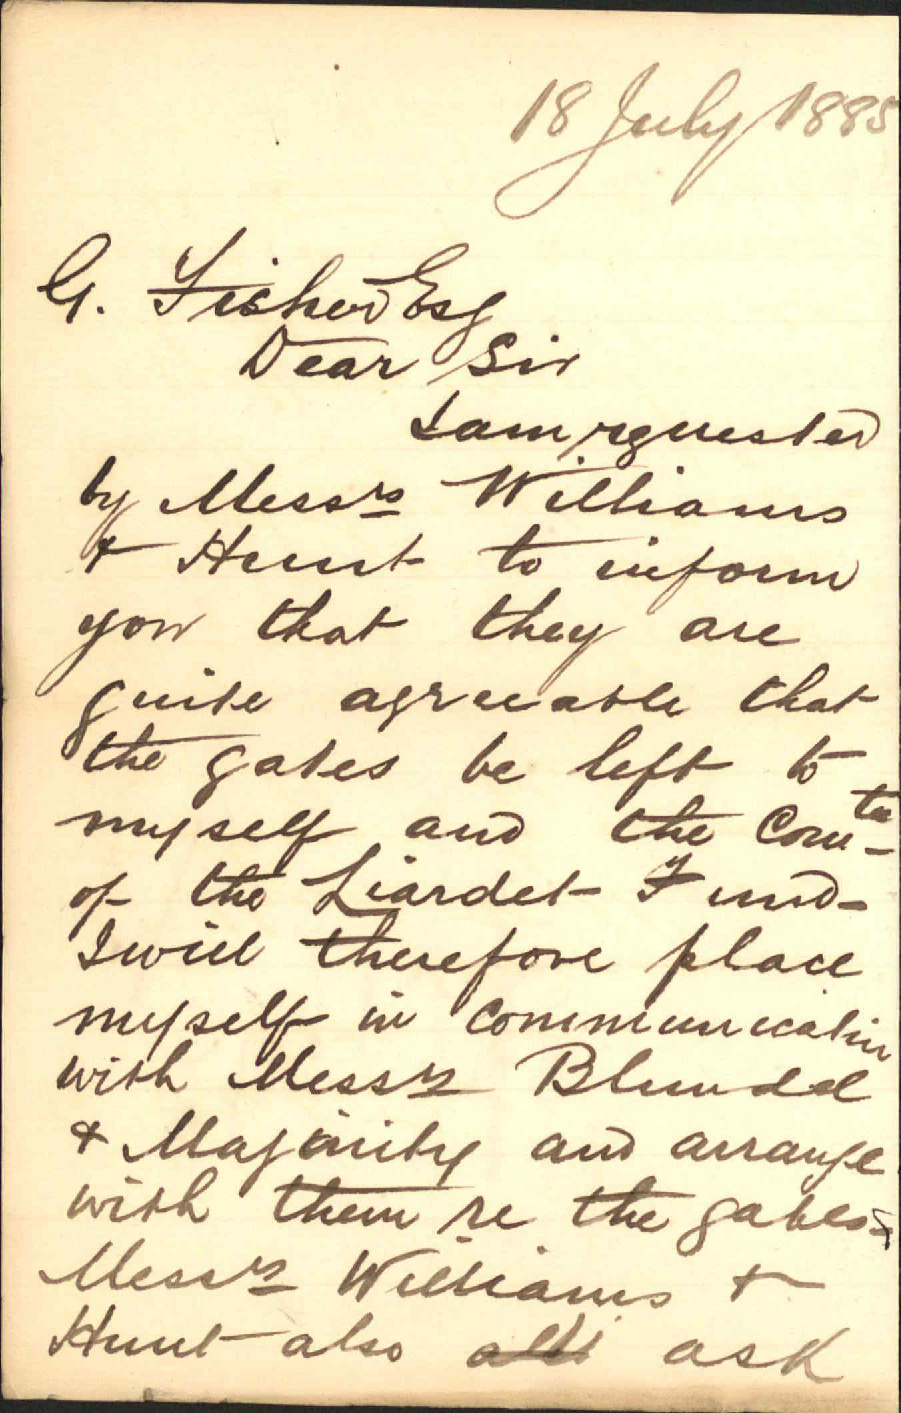 18 July 1885
G. Fisher Esq
Dear Sir
I am requested
by Messrs Williams
& Hunt to inform
you that they are
quite agreeable that
the gates be left to
myself and the Comtee
of the Liardet Fund-
I will therefore place
myself in communicatin
with Messrs Blundel
& Majority and arrange
with them re the gates-
Messrs Williams &
Hunt also ask